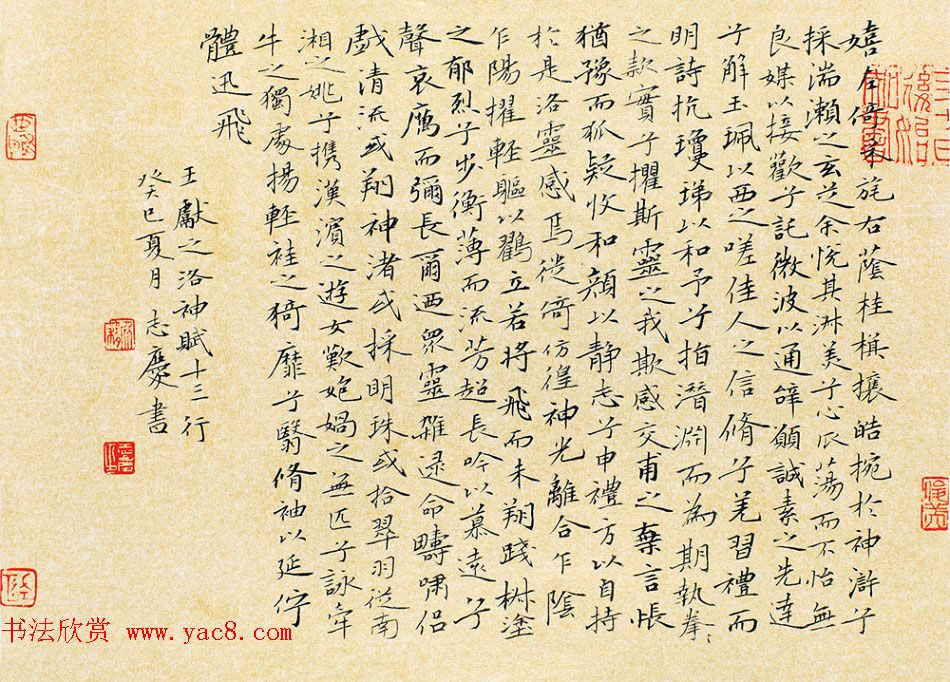 嬉左倚采旄右蔭桂棋攘皓捥於神滸兮
採湍瀨之玄芝余悅其淋美兮心爪蕩而不怡無
良媒以接歡兮託微波以通辭願誠素之先達
兮解玉珮以西之嗟佳人之信脩兮羌習禮而
明詩抗瓊珶以和予兮指潛淵而為期執拳〻
之款實兮懼斯靈之我欺感交甫之棄言悵
猶豫而狐疑收和顏以靜志兮申禮方以自持
於是洛靈感焉徙倚仿徨神光離合乍陰
乍陽擢輕軀以鶴立若將飛而未翔踐椒塗
之郁烈兮步衡薄而流芳超長吟以慕遠兮
聲哀厲而彌長爾迺眾靈雜遝命疇嘯侶
戲清流或翔神渚或採明珠或拾翠羽從南
湘之姚兮携漢濱之遊女歎炮媧之無匹兮詠牽
牛之獨處揚輕袿之猗靡兮翳脩袖以延佇
體迅飛
王獻之洛神賦十三行
癸巳夏月志慶書
书法欣赏 www.yac8.com